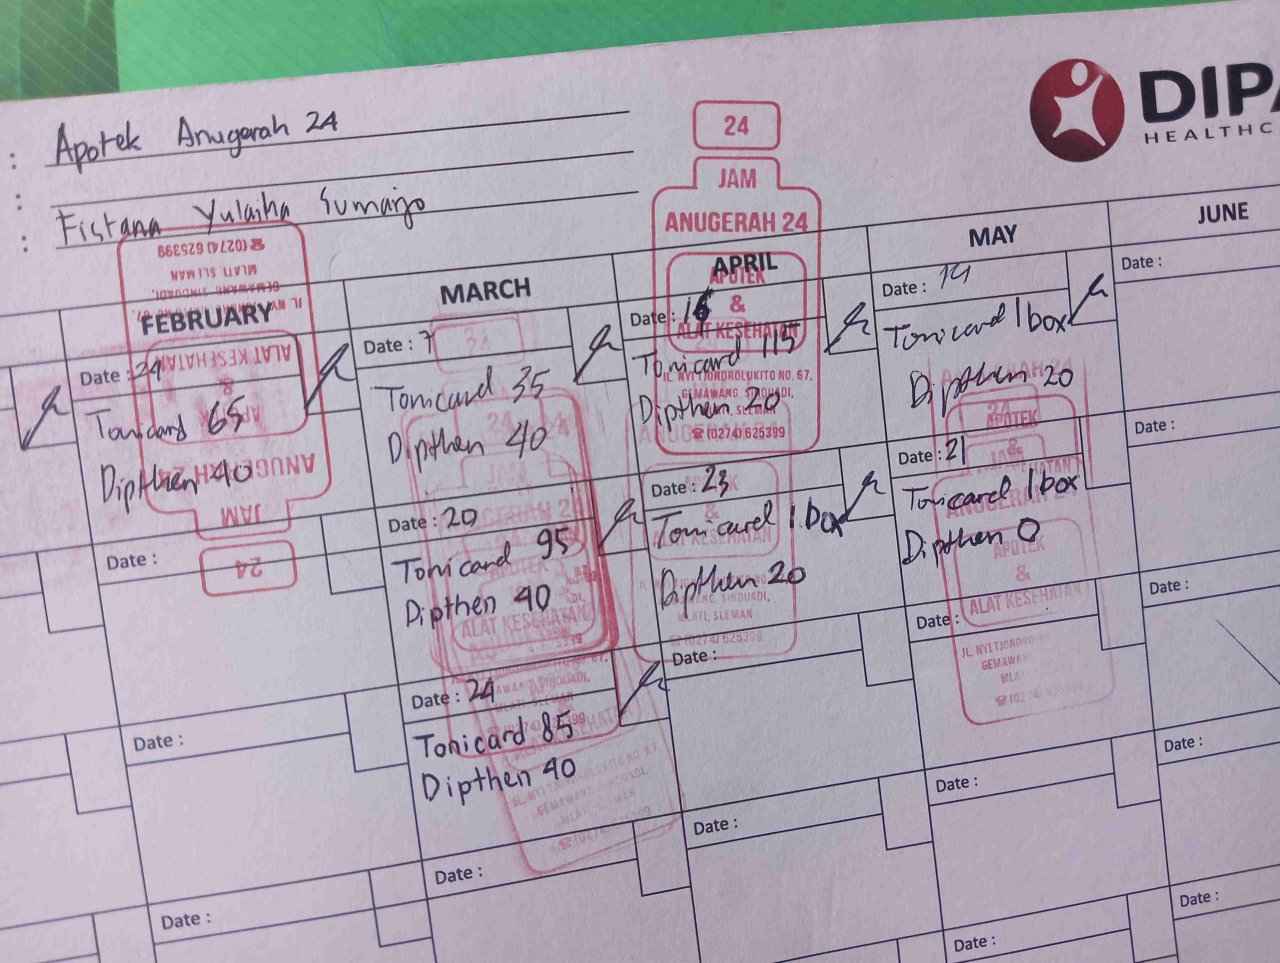 DIPA
HEALTHC
: Apotek Anugerah 24
:
: Fistana Yulaiha Sumarjo
24
JAM
ANUGERAH 24
APOTEK
&
ALAT KESEHATAN
JL. NYI TJONDROLUKITO NO. 67,
GEMAWANG SINDUADI,
MLATI, SLEMAN
☎ (0274) 625399
FEBRUARY
Date : 24
Tonicard 65
Dipthen 40
Date :
Date :
Date :
MARCH
Date : 7
Tonicard 35
Dipthen 40
Date : 20
Tonicard 95
Dipthen 40
Date : 24
Tonicard 85
Dipthen 40
Date :
APRIL
Date : 16
Tonicard 115
Dipthen 20
Date : 23
Tonicard 1 box
Dipthen 20
Date :
Date :
MAY
Date : 14
Tonicard 1 box
Dipthen 20
Date : 21
Tonicard 1 box
Dipthen 0
Date :
Date :
Date :
JUNE
Date :
Date :
Date :
Date :
Date :